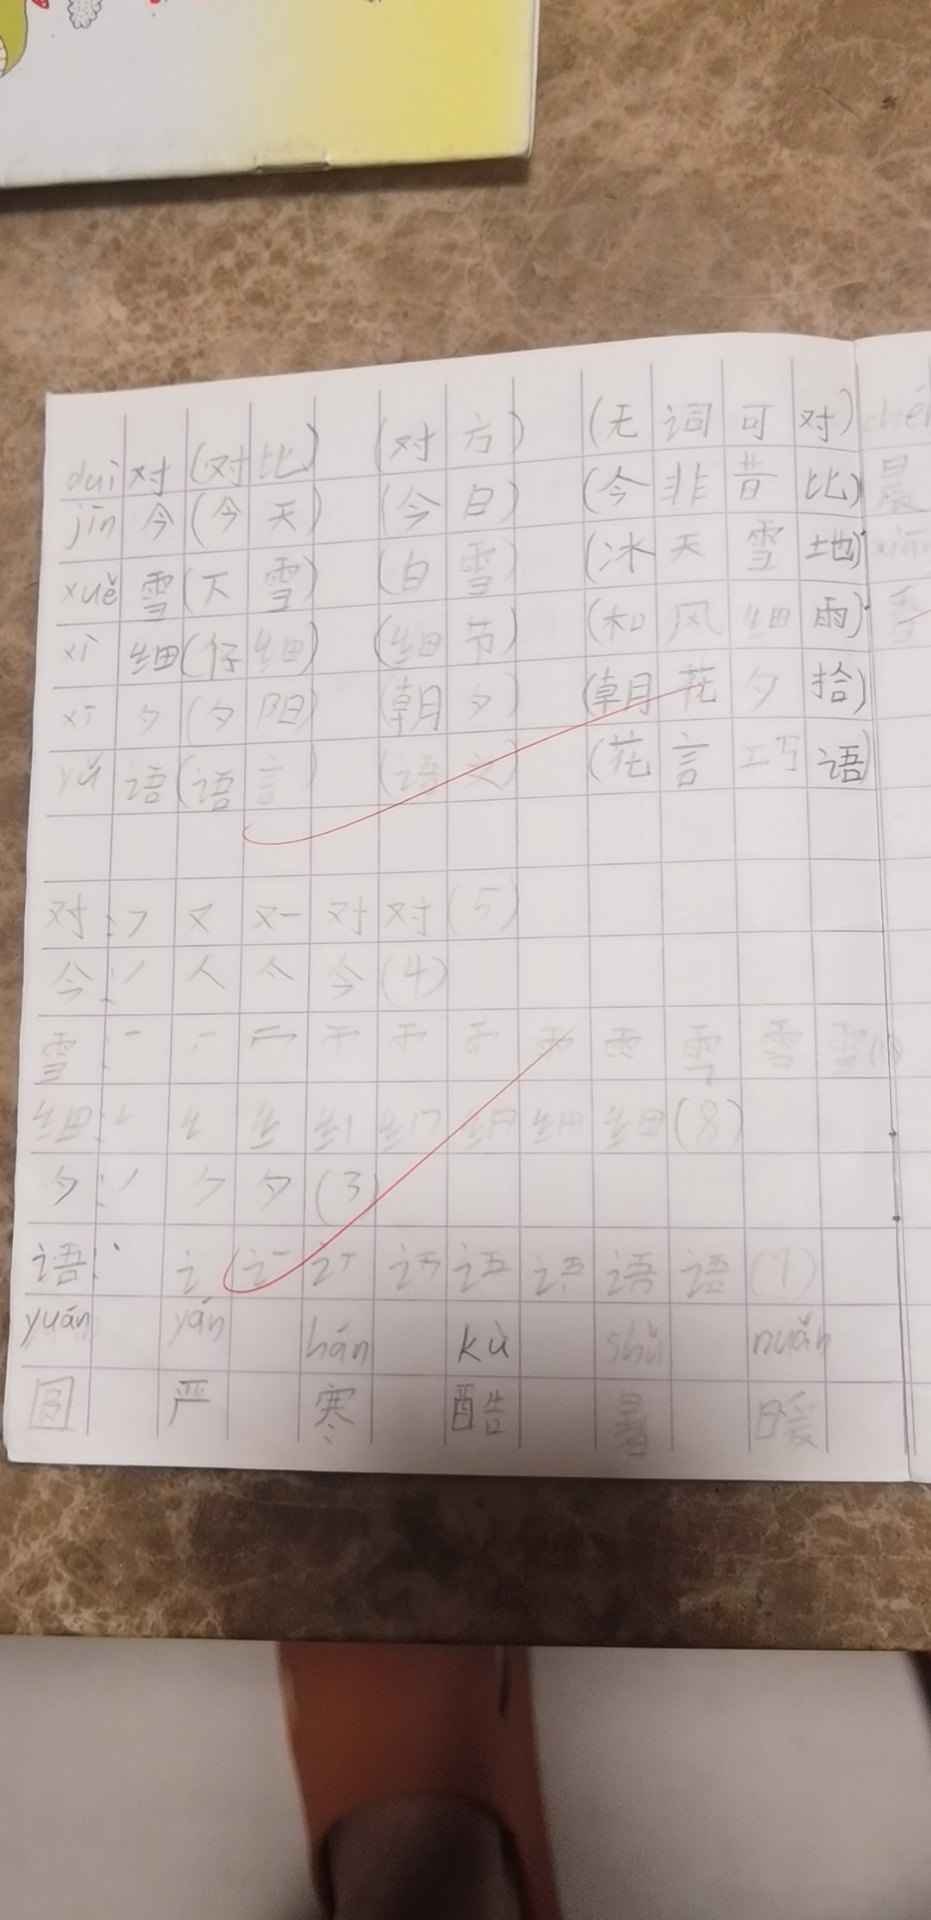 duì 对 (对比) (对方) (无词可对)
jīn 今 (今天) (今日) (今非昔比)
xuě 雪 (下雪) (白雪) (冰天雪地)
xì 细 (仔细) (细节) (和风细雨)
xī 夕 (夕阳) (朝夕) (朝花夕拾)
yǔ 语 (语言) (语文) (花言巧语)
对: フ 又 对 对 (5)
今: 丿 人 今 (4)
雪: 一 雪 雪
细: 纟 细 细 (8)
夕: 丿 ク 夕 (3)
语: 丶 讠 语 语 (9)
yuán yán hán kù shǔ nuǎn
圆 严 寒 酷 暑 暖
晨